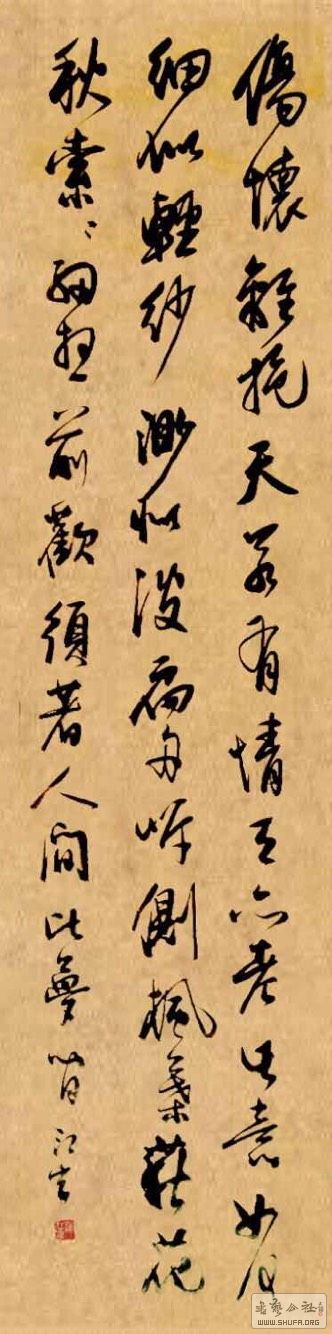 傷懷離抱天若有情天亦老此意如何
細似輕紗渺似波扁舟岸側楓葉荻花
秋索〻細想前歡須著人間比夢間
书艺公社
WWW.SHUFA.ORG